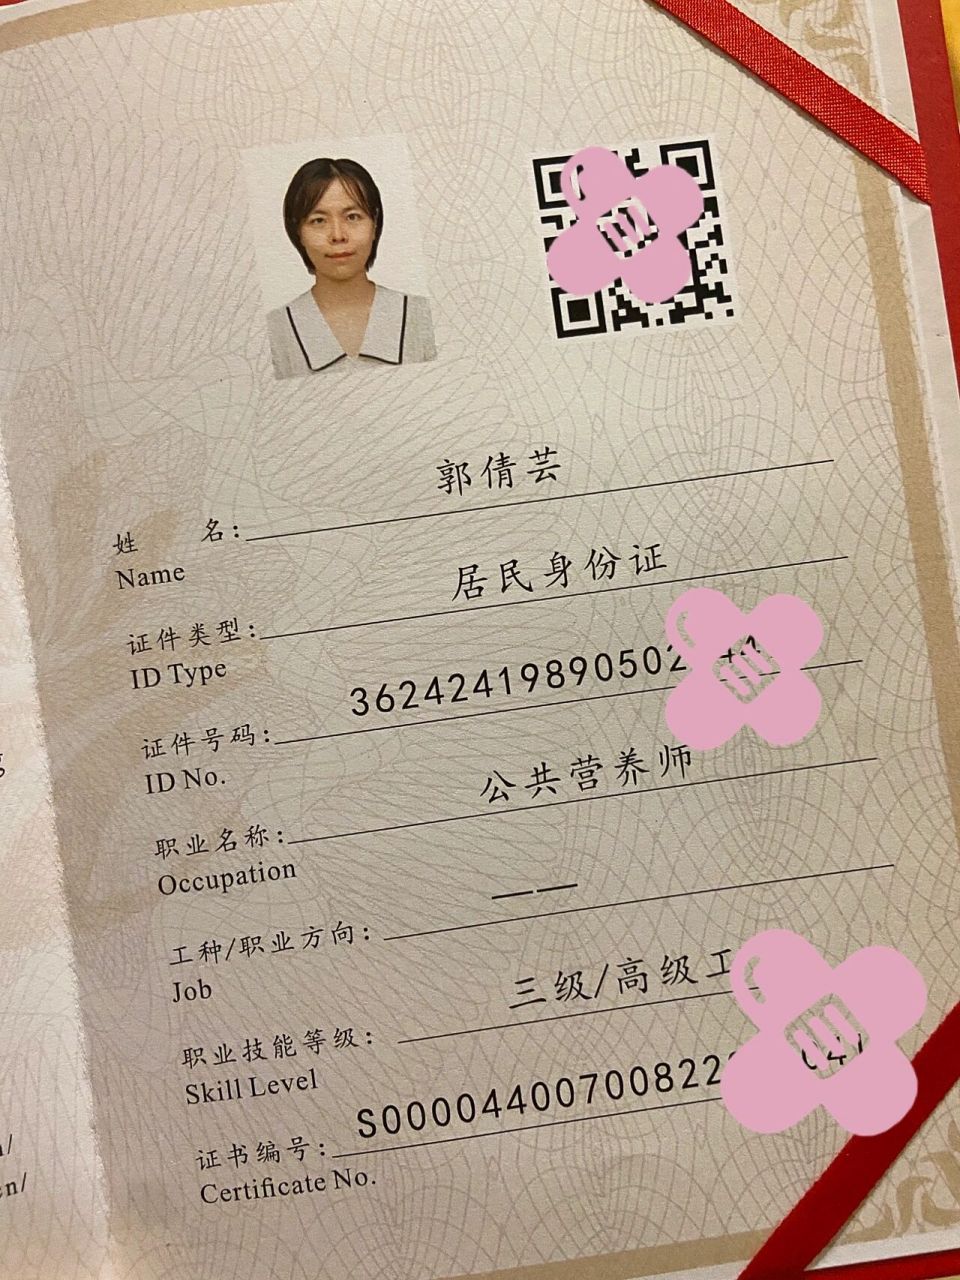 姓名：郭倩芸
Name
证件类型：居民身份证
ID Type
证件号码：36242419890502
ID No.
职业名称：公共营养师
Occupation
工种/职业方向：——
Job
职业技能等级：三级/高级工
Skill Level
证书编号：S000044007008222
Certificate No.